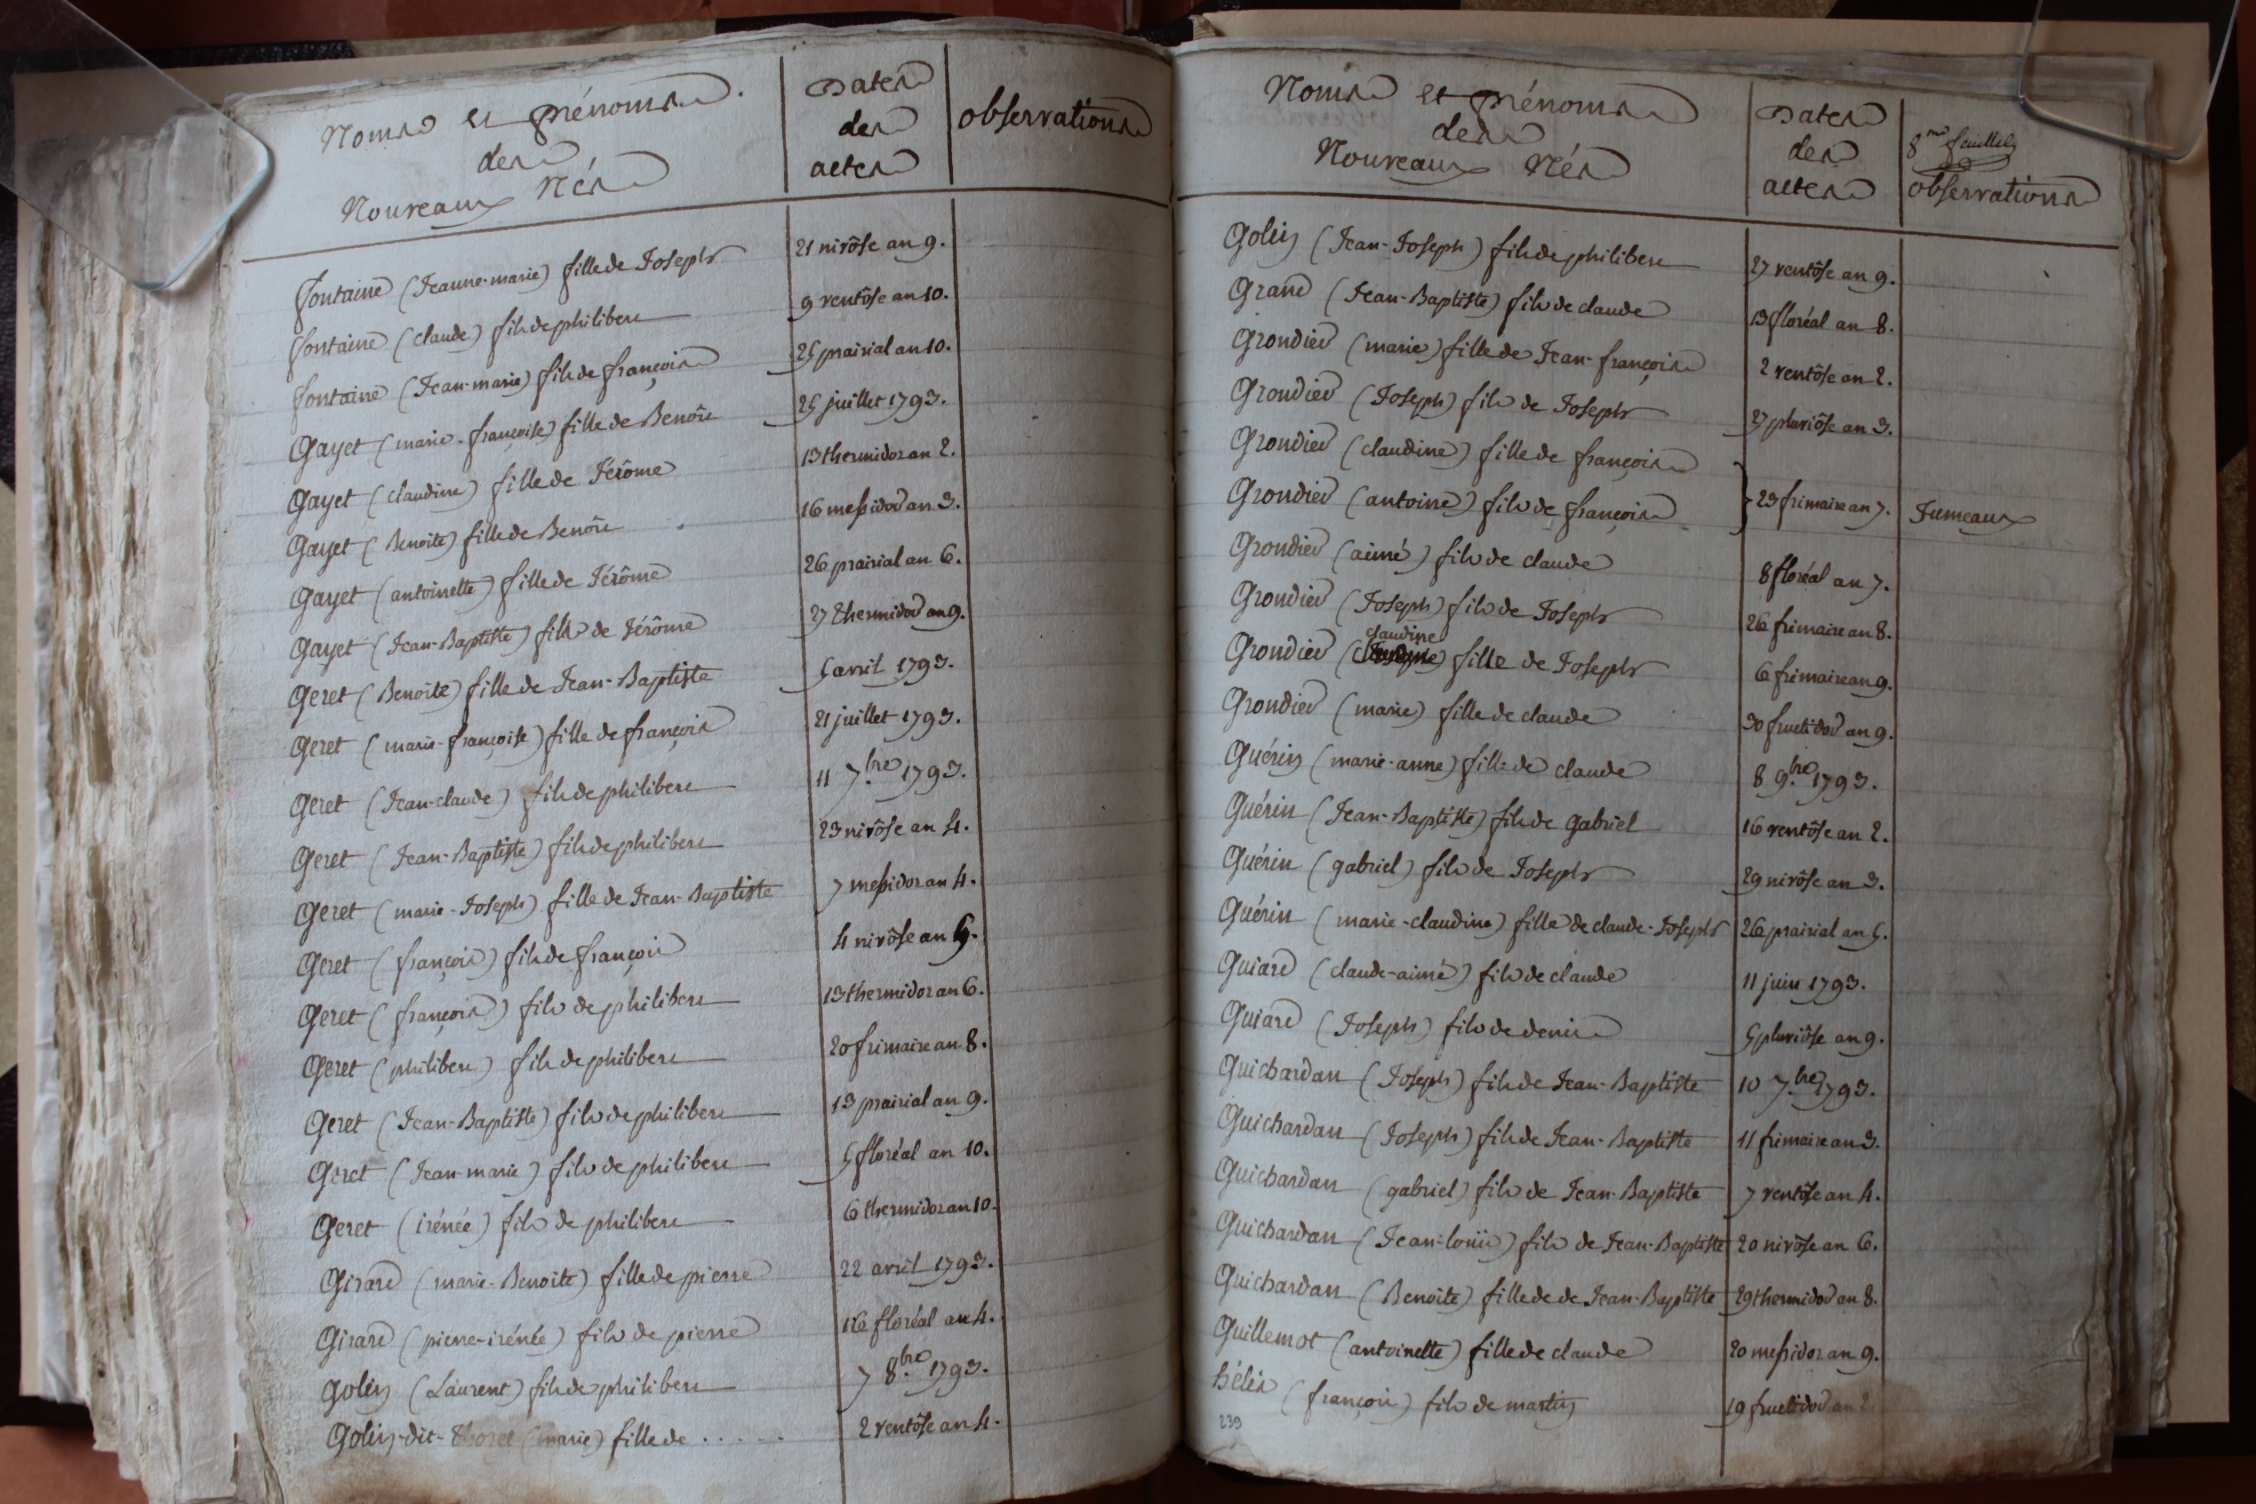 Noms et prénoms
des
Nouveaux Nés
Dates
des
actes
observations
fontaine (Jeanne-marie) fille de Joseph 21 nivôse an 9.
fontaine (claude) fils de philibert 9 ventôse an 10.
fontaine (Jean-marie) fils de françois 25 prairial an 10.
Gayet (marie-françoise) fille de Benoît 25 juillet 1793.
Gayet (claudine) fille de Jérôme 13 thermidor an 2.
Gayet (Benoite) fille de Benoît 16 messidor an 3.
Gayet (antoinette) fille de Jérôme 26 prairial an 6.
Gayet (Jean-Baptiste) fils de Jérôme 27 thermidor an 9.
Geret (Benoite) fille de Jean-Baptiste 5 avril 1793.
Geret (marie-françoise) fille de françois 21 juillet 1793.
Geret (Jean-claude) fils de philibert 11 7.bre 1793.
Geret (Jean-Baptiste) fils de philibert 23 nivôse an 4.
Geret (marie-Joseph) fille de Jean-Baptiste 7 messidor an 4.
Geret (françois) fils de françois 4 nivôse an 5.
Geret (françois) fils de philibert 13 thermidor an 6.
Geret (philibert) fils de philibert 20 frimaire an 8.
Geret (Jean-Baptiste) fils de philibert 13 prairial an 9.
Geret (Jean-marie) fils de philibert 5 floréal an 10.
Geret (irénée) fils de philibert 6 thermidor an 10.
Girard (marie-Benoite) fille de pierre 22 avril 1793.
Girard (pierre-irénée) fils de pierre 16 floréal an 4.
Golin (Laurent) fils de philibert 7 8.bre 1793.
Golin-dit-Thoret (marie) fille de ..... 2 ventôse an 4.
Noms et prénoms
des
Nouveaux Nés
Dates
des
actes
8.me feuillet
observations
Golin (Jean-Joseph) fils de philibert 27 ventôse an 9.
Grand (Jean-Baptiste) fils de claude 13 floréal an 8.
Grondier (marie) fille de Jean-françois 2 ventôse an 2.
Grondier (Joseph) fils de Joseph 27 pluviôse an 3.
Grondier (claudine) fille de françois
Grondier (antoine) fils de françois } 23 frimaire an 7. Jumeaux
Grondier (aimé) fils de claude 8 floréal an 7.
Grondier (Joseph) fils de Joseph 26 frimaire an 8.
claudine
Grondier () fille de Joseph 6 frimaire an 9.
Grondier (marie) fille de claude 30 fructidor an 9.
Guérin (marie-anne) fille de claude 8 9.bre 1793.
Guérin (Jean-Baptiste) fils de Gabriel 16 ventôse an 2.
Guérin (gabriel) fils de Joseph 29 nivôse an 3.
Guérin (marie-claudine) fille de claude-Joseph 26 prairial an 5.
Guiard (claude-aimé) fils de claude 11 juin 1793.
Guiard (Joseph) fils de denis 5 pluviôse an 9.
Guichardan (Joseph) fils de Jean-Baptiste 10 7.bre 1793.
Guichardan (Joseph) fils de Jean-Baptiste 11 frimaire an 3.
Guichardan (gabriel) fils de Jean-Baptiste 7 ventôse an 4.
Guichardan (Jean-louis) fils de Jean-Baptiste 20 nivôse an 6.
Guichardan (Benoite) fille de de Jean-Baptiste 29 thermidor an 8.
Guillemot (antoinette) fille de claude 20 messidor an 9.
hélis (françois) fils de martin 19 fructidor an 2.
239